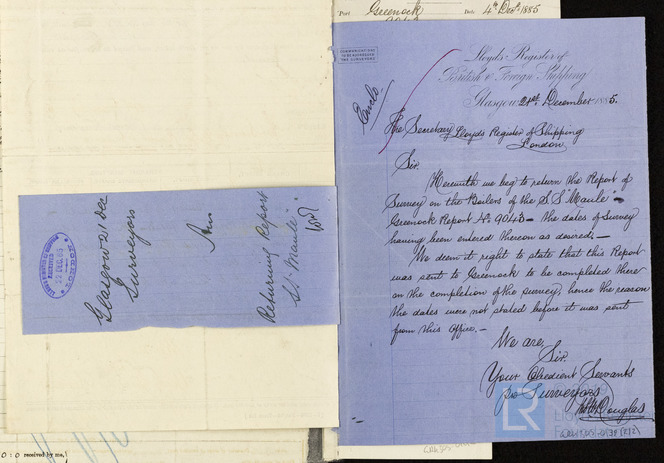 Port Greenock
Date 4th Decr 1885
9043
COMMUNICATIONS
TO BE ADDRESSED
THE SURVEYORS
Lloyd's Register of
British & Foreign Shipping
Glasgow 21st December 1885.
Enclo
The Secretary Lloyds Register of Shipping
London
Sir.
Herewith we beg to return the Report of
Survey on the Boilers of the S.S. "Maulé"
Greenock Report No 9043 - the dates of Survey
having been entered thereon as desired. -
We deem it right to state that this Report
was sent to Greenock to be completed there
on the completion of the survey, hence the reason
the dates were not stated before it was sent
from this Office. -
We are,
Sir.
Your Obedient Servants
pro Surveyors
Douglas
Glasgow 21 Dec
Surveyors
Returning Report
S.S. "Maulé"
RECEIVED
22 DEC. 85
LR
0 : 0 received by me,